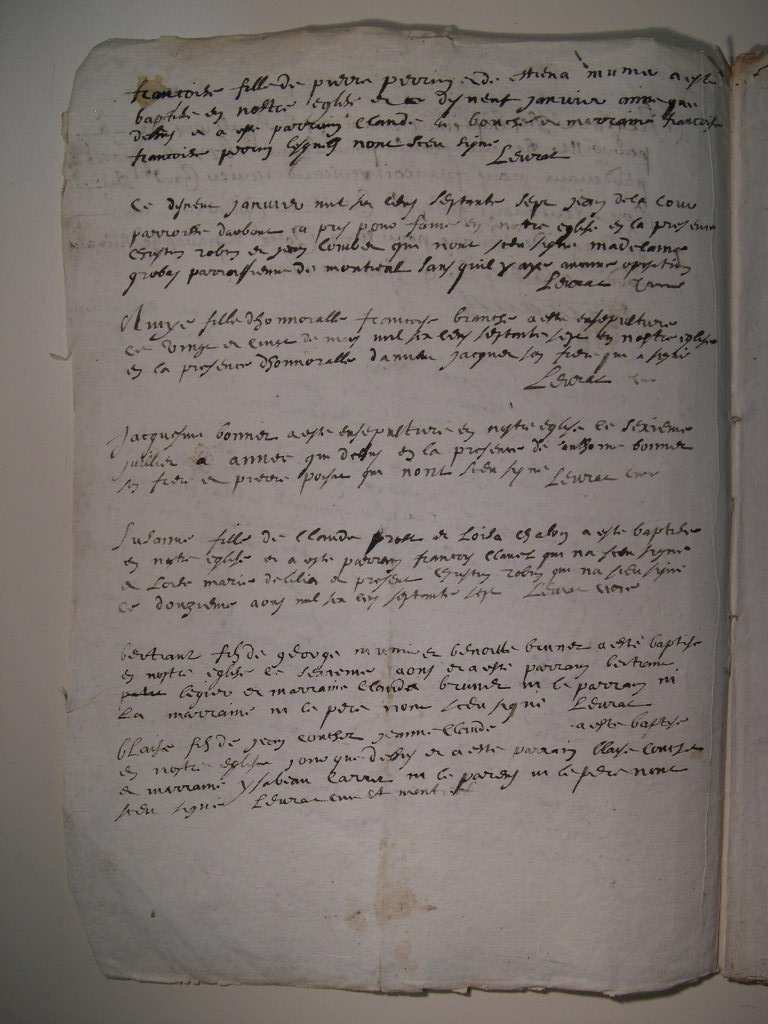 francoise fille de pierre perrin et de estiena munier a este
baptise en nostre eglise ce disneuf janvier annee que
dessus et a este parrain Claude bouche et marraine francoise
francoise perrin lesquels nont sceu signe
Leurat
Ce disneuf janvier mil six cens septante sept jean de la Cour
parroisse dambout a pris pour fame en nostre eglise en la presence
Christin robin et jean Combet qui nont sceu signe madelaine
grobas parroissienne de montreal sans quil y aye aucune oposition
Leurat
fille dhonnorable francoise branche a este ensepulturee
ce vingt et cinq de may mil six cens septante sept en nostre eglise
en la presence dhonnorable jacques son frere qui a signe
Leurat
bonner a este ensepulturee en nostre eglise ce sexieme
juillier annee que dessus en la presence de anthoine bonner
son frere et pierre qui nont sceu signe Leurat cure
Susanne fille de Claude et Loisa Chalon a este baptise
en nostre eglise et a este parrain francois qui na sceu signe
et marie present Christin robin qui na sceu signe
ce douzieme aous mil six cens septante sept Leurat cure
bertrant fils de george et benoitte brunet a este baptise
en nostre eglise ce aous et a este parrain bertrant
legier et marraine Clauda brunet ni le parrain ni
La marraine ni le pere nont sceu signe Leurat
blaise fils de jean jemme Claude a este baptise
en nostre eglise jour que dessus et a este parrain blaise
et marraine ysabeau ni le parrain ni le pere nont
sceu signe Leurat cure